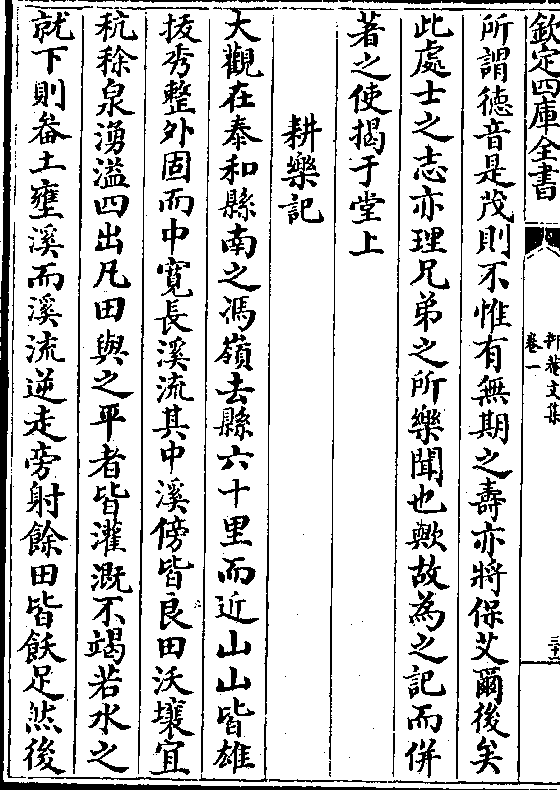 欽定四庫全書
卷一
所謂德音是茂則不惟有無期之壽亦將保艾爾後矣
此處士之志亦理兄弟之所樂聞也歟故為之記而併
著之使揭于堂上
耕樂記
大觀在泰和縣南之馮嶺去縣六十里而近山山皆雄
拔秀整外固而中寛長溪流其中溪傍皆良田沃壤宜
秔稌泉湧溢四出凡田與之平者皆灌溉不竭若水之
就下則畚土壅溪而溪流逆走旁射餘田皆飫足然後